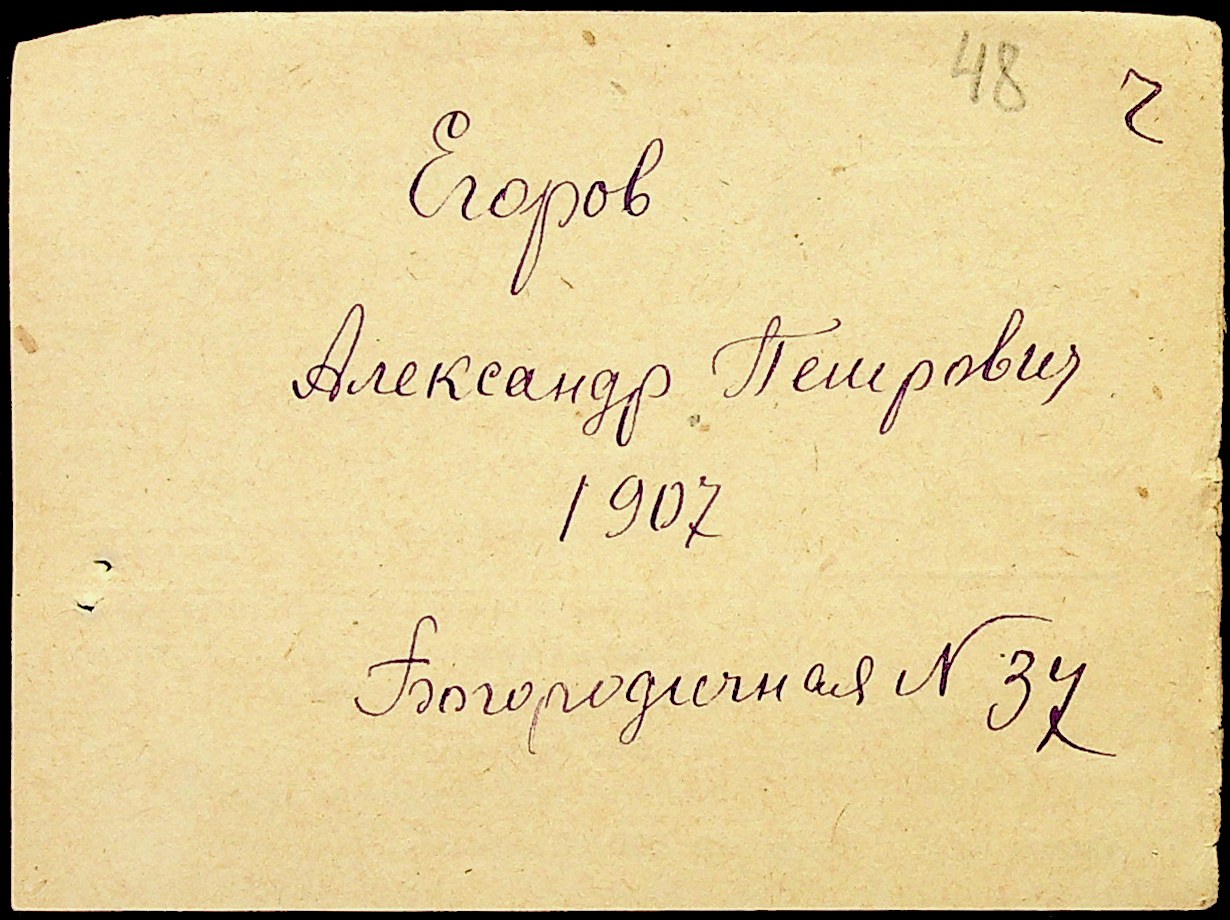 48
Егоров
Александр Петрович
1907
Богородичная N 37